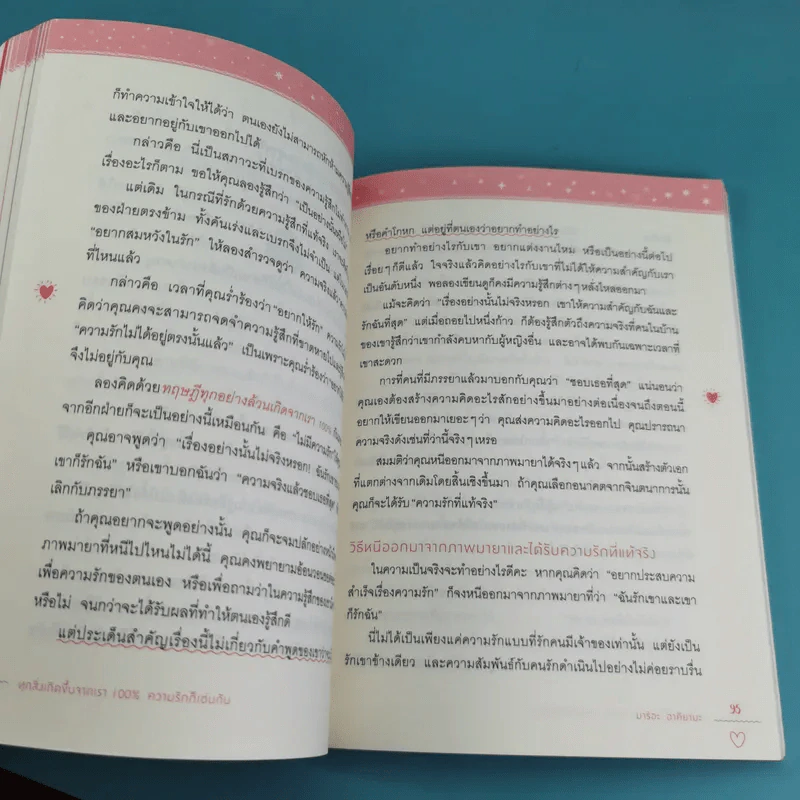 ก็ทำความเข้าใจให้ได้ว่า ตนเองยังไม่สามารถหักห้ามความ
และอยากอยู่กับเขาออกไปได้
กล่าวคือ นี่เป็นสภาวะที่เบรกของความรู้สึก
เรื่องอะไรก็ตาม ขอให้คุณลองรู้สึกว่า "เป็นอย่างนั้น
แต่เดิม ในกรณีที่รักด้วยความรู้สึกที่แท้จริง
ของฝ่ายตรงข้าม ทั้งคันเร่งและเบรกจึงไม่จำเป็น แต่
"อยากสมหวังในรัก" ให้ลองสำรวจดูว่า ความจริงแล้ว
ที่ไหนแล้ว
กล่าวคือ เวลาที่คุณร่ำร้องว่า "อยากให้รัก"
คิดว่าคุณคงจะสามารถจดจำความรู้สึกที่ขาดหายไป
"ความรักไม่ได้อยู่ตรงนั้นแล้ว" เป็นเพราะคุณร่ำร้องว่า
จึงไม่อยู่กับคุณ
ลองคิดด้วยทฤษฎีทุกอย่างล้วนเกิดจากเรา 100%
จากอีกฝ่ายก็จะเป็นอย่างนี้เหมือนกัน คือ "ไม่มีความรัก
คุณอาจพูดว่า "เรื่องอย่างนั้นไม่จริงหรอก! ฉันรัก
เขาก็รักฉัน" หรือเขาบอกฉันว่า "ความจริงแล้วชอบเธอที่สุด"
เลิกกับภรรยา"
ถ้าคุณอยากจะพูดอย่างนั้น คุณก็จะจมปลักอย่าง
ภาพมายาที่หนีไปไหนไม่ได้นี้ คุณคงพยายามอ้อนวอน
เพื่อความรักของตนเอง หรือเพื่อถามว่าในความรู้สึกของ
หรือไม่ จนกว่าจะได้รับผลที่ทำให้ตนเองรู้สึกดี
แต่ประเด็นสำคัญเรื่องนี้ไม่เกี่ยวกับคำพูดของเขาว่า
ทุกสิ่งเกิดขึ้นจากเรา 100% ความรักก็เช่นกัน
หรือคำโกหก แต่อยู่ที่ตนเองว่าอยากทำอย่างไร
อยากทำอย่างไรกับเขา อยากแต่งงานไหม หรือเป็นอย่างนี้ต่อไป
เรื่อยๆ ก็ดีแล้ว ใจจริงแล้วคิดอย่างไรกับเขาที่ไม่ได้ให้ความสำคัญกับเรา
เป็นอันดับหนึ่ง พอลองเขียนดูก็คงมีความรู้สึกต่างๆ หลั่งไหลออกมา
แม้จะคิดว่า "เรื่องอย่างนั้นไม่จริงหรอก เขาให้ความสำคัญกับฉันและ
รักฉันที่สุด" แต่เมื่อถอยไปหนึ่งก้าว ก็ต้องรู้สึกตัวถึงความจริงที่คนในบ้าน
ของเขารู้สึกว่าเขากำลังคบหากับผู้หญิงอื่น และอาจได้พบกันเฉพาะเวลาที่
เขาสะดวก
การที่คนที่มีภรรยาแล้วมาบอกกับคุณว่า "ชอบเธอที่สุด" แน่นอนว่า
คุณเองต้องสร้างความคิดอะไรสักอย่างขึ้นมาอย่างต่อเนื่องจนถึงตอนนี้
อยากให้เขียนออกมาเยอะๆ ว่า คุณส่งความคิดอะไรออกไป คุณปรารถนา
ความจริงดังเช่นที่ว่านี้จริงๆ เหรอ
สมมติว่าคุณหนีออกมาจากภาพมายาได้จริงๆ แล้ว จากนั้นสร้างตัวเอก
ที่แตกต่างจากเดิมโดยสิ้นเชิงขึ้นมา ถ้าคุณเลือกอนาคตจากจินตนาการนั้น
คุณก็จะได้รับ "ความรักที่แท้จริง"
วิธีหนีออกมาจากภาพมายาและได้รับความรักที่แท้จริง
ในความเป็นจริงจะทำอย่างไรดีคะ หากคุณคิดว่า "อยากประสบความ
สำเร็จเรื่องความรัก" ก็จงหนีออกมาจากภาพมายาที่ว่า "ฉันรักเขาและเขา
ก็รักฉัน"
นี่ไม่ได้เป็นเพียงแค่ความรักแบบที่รักคนมีเจ้าของเท่านั้น แต่ยังเป็น
รักเขาข้างเดียว และความสัมพันธ์กับคนรักดำเนินไปอย่างไม่ค่อยราบรื่น
95